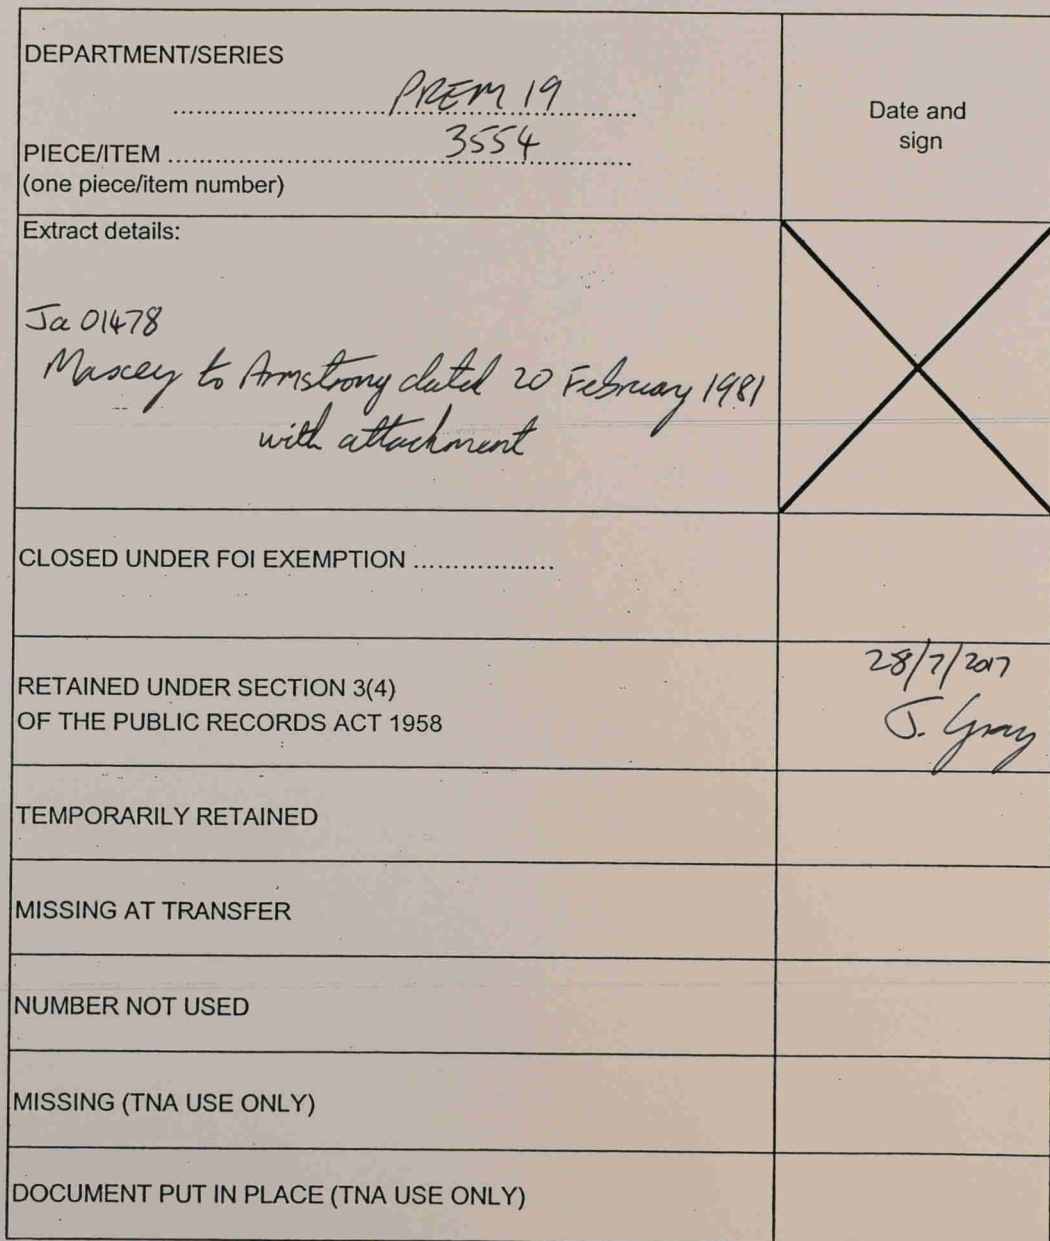 DEPARTMENT/SERIES
.......................... PREM 19 ..........
PIECE/ITEM .......................... 3554 ..........
(one piece/item number)
Date and
sign
Extract details:
Ja 01478
Mascey to Armstrong dated 20 February 1981
with attachment
CLOSED UNDER FOI EXEMPTION ..................
RETAINED UNDER SECTION 3(4)
OF THE PUBLIC RECORDS ACT 1958
28/7/2017
J. Gray
TEMPORARILY RETAINED
MISSING AT TRANSFER
NUMBER NOT USED
MISSING (TNA USE ONLY)
DOCUMENT PUT IN PLACE (TNA USE ONLY)